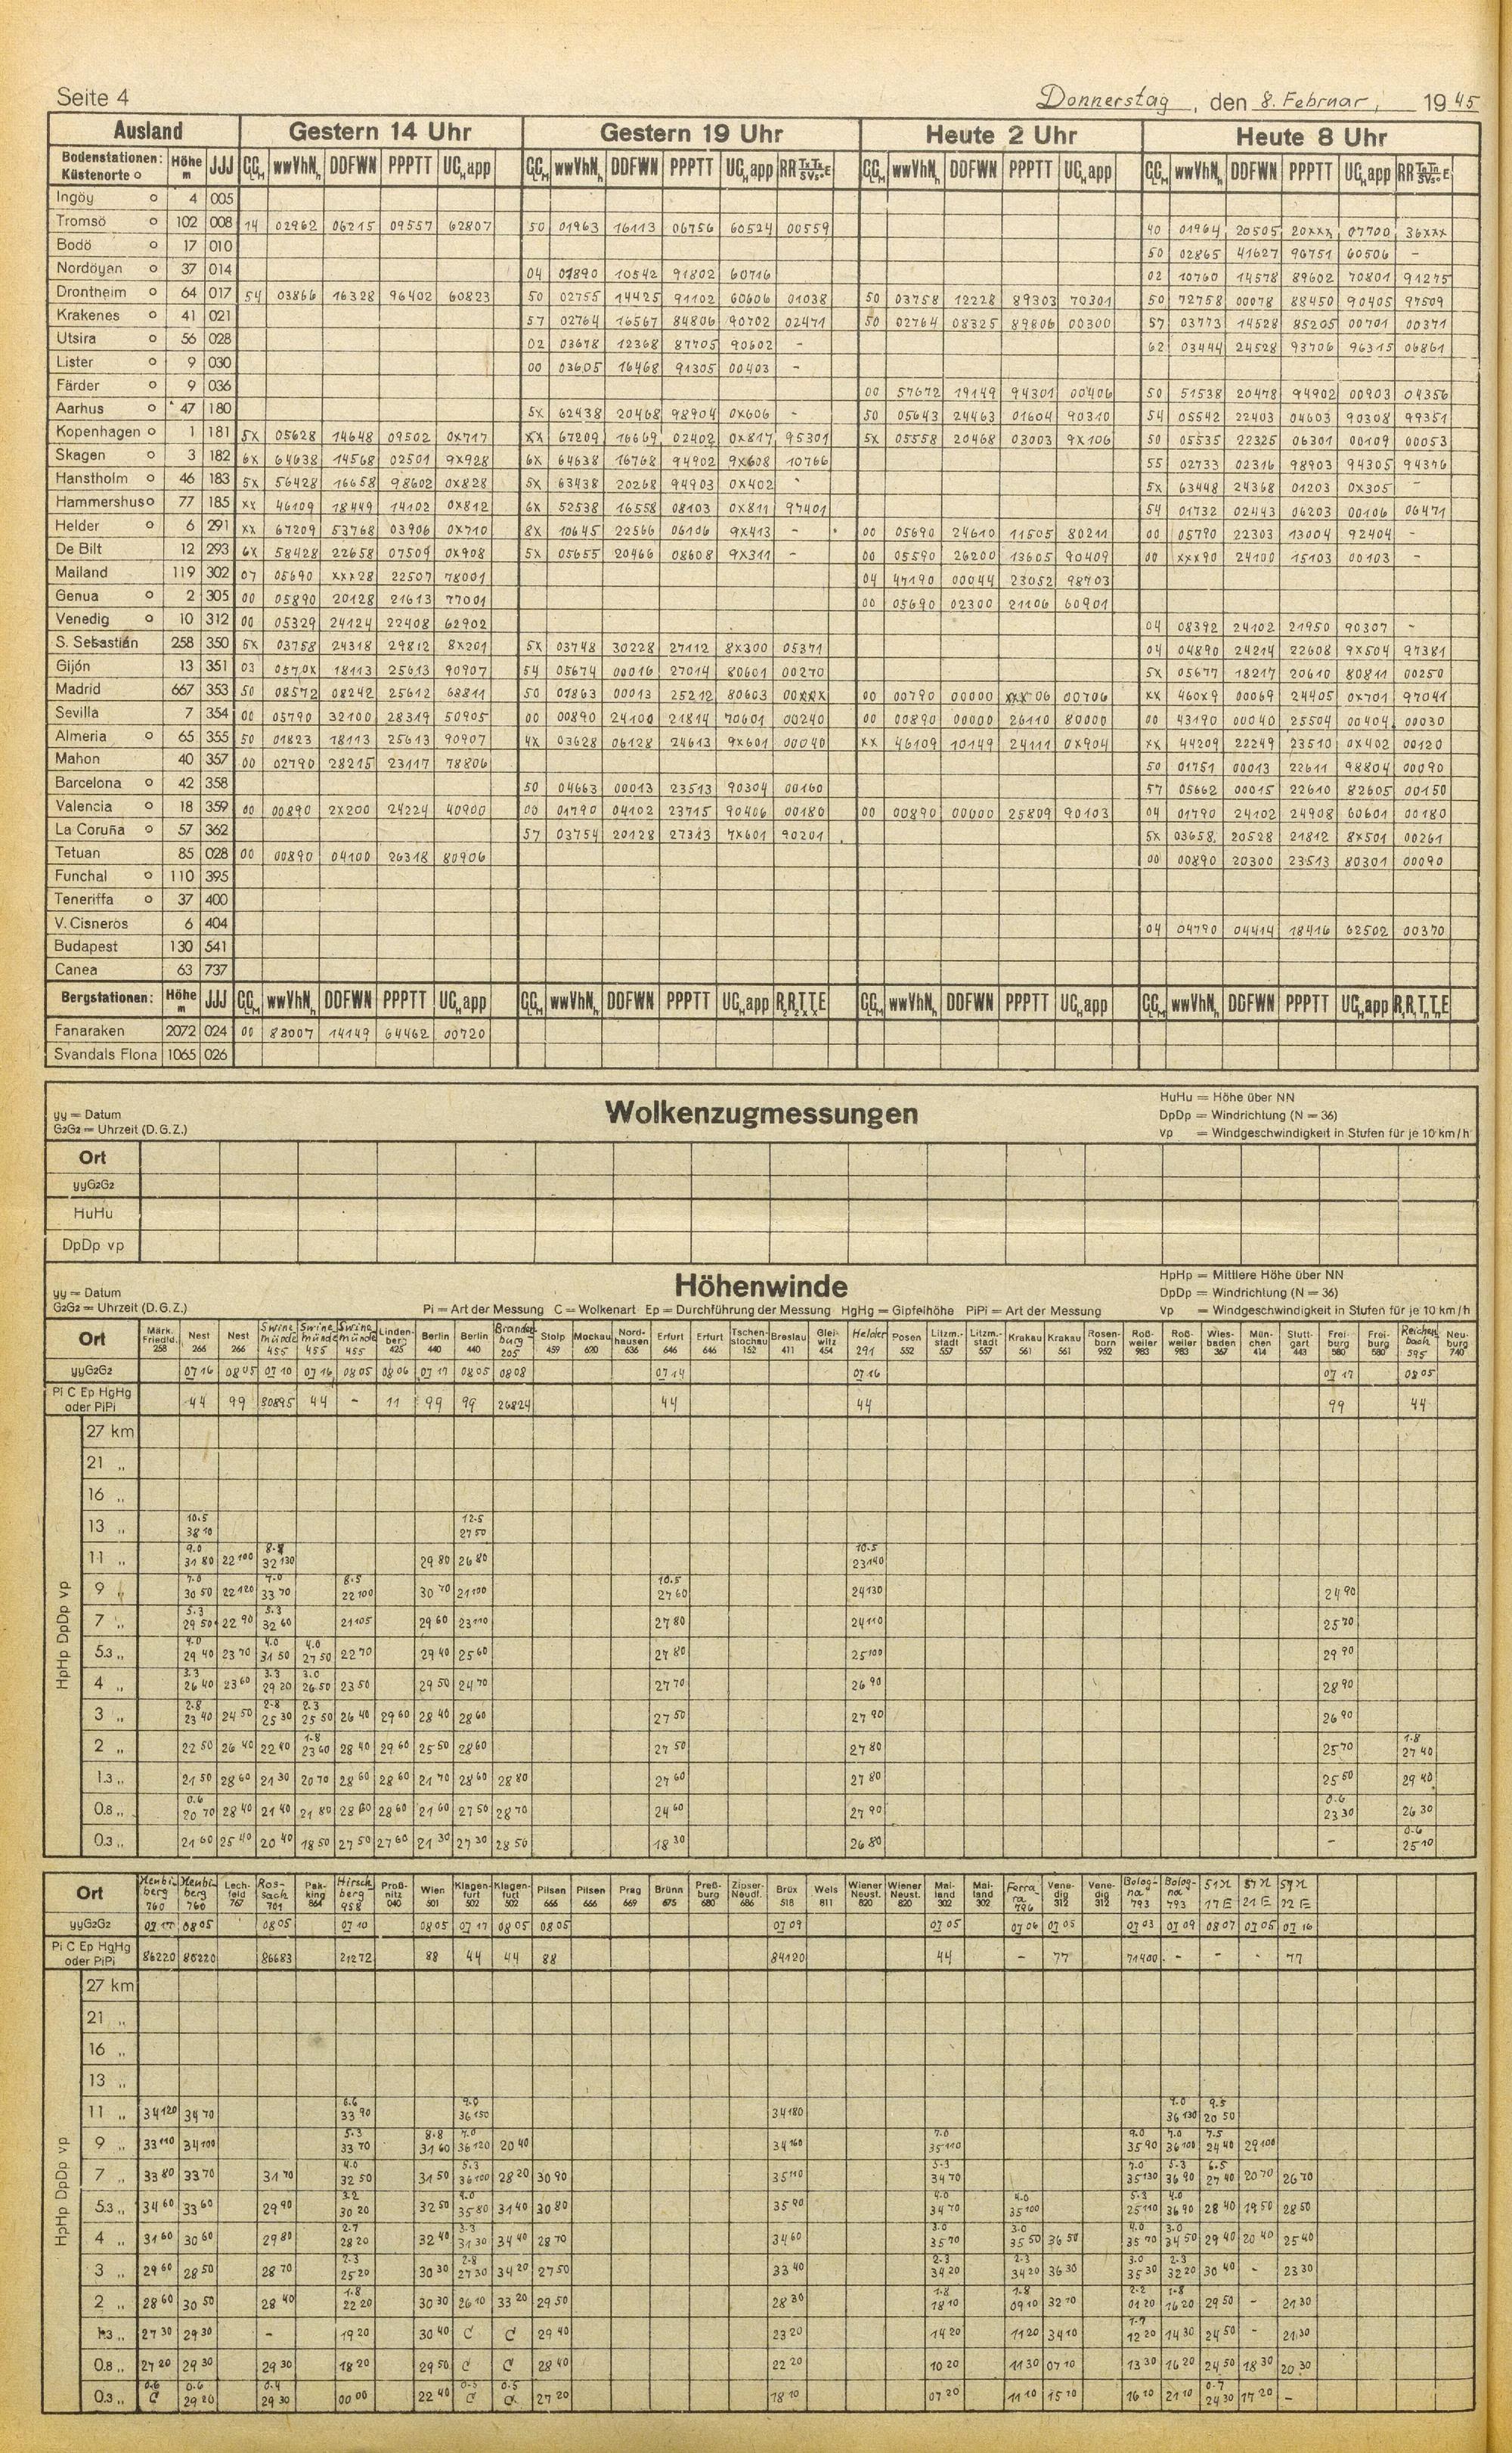 Seite 4
Donnerstag, den 8. Februar, 1945
Ausland Gestern 14 Uhr Gestern 19 Uhr Heute 2 Uhr Heute 8 Uhr
Bodenstationen: Höhe JJJ wwVhN DDFWN PPPTT app wwVhN DDFWN PPPTT app RR wwVhN DDFWN PPPTT app wwVhN DDFWN PPPTT app RR
Küstenorte o m
Ingöy o 4 005
Tromsö o 102 008 14 02962 06215 09557 62807 50 01963 16113 06756 60524 00559 40 01964 20505 20xxx 07700 36xxx
Bodö o 17 010 50 02865 41627 96751 60506 -
Nordöyan o 37 014 04 01890 10542 91802 60716 02 10760 14578 89602 70801 91275
Drontheim o 64 017 54 03866 16328 96402 60823 50 02755 14425 91102 60606 01038 50 03758 12228 89303 70301 50 72758 00078 88450 90405 97509
Krakenes o 41 021 57 02764 16567 84806 90702 02471 50 02764 08325 89806 00300 57 03773 14528 85205 00701 00371
Utsira o 56 028 02 03678 12368 87705 90602 - 62 03444 24528 93706 96315 06861
Lister o 9 030 00 03605 16468 91305 00403 -
Färder o 9 036 00 57672 19149 94301 00406 50 51538 20478 94902 00903 04356
Aarhus o 47 180 5x 62438 20468 98904 0x606 - 50 05643 24463 01604 90310 54 05542 22403 04603 90308 99351
Kopenhagen o 1 181 5x 05628 14648 09502 0x717 xx 67209 16669 02402 0x817 95301 5x 05558 20468 03003 9x106 50 05535 22325 06301 00109 00053
Skagen o 3 182 6x 64638 14568 02501 9x928 6x 64638 16768 94902 9x608 10766 55 02733 02316 98903 94305 94376
Hanstholm o 46 183 5x 56428 16658 98602 0x828 5x 63438 20268 94903 0x402 5x 63448 24368 01203 0x305 -
Hammershus o 77 185 xx 46109 18449 14102 0x812 6x 52538 16558 08103 0x811 97401 54 01732 02443 06203 00106 06471
Helder o 6 291 xx 67209 53768 03906 0x710 8x 10645 22566 06106 9x413 - 00 05690 24610 11505 80211 00 05790 22303 13004 92404 -
De Bilt 12 293 6x 58428 22658 07509 0x908 5x 05655 20466 08608 9x311 - 00 05590 26200 13605 90409 00 xxx90 24100 15103 00103 -
Mailand 119 302 07 05690 xxx28 22507 78001 04 47190 00044 23052 98703
Genua o 2 305 00 05890 20128 21613 77001 00 05690 02300 21106 60901
Venedig o 10 312 00 05329 24124 22408 62902 04 08392 24102 21950 90307 -
S. Sebastián 258 350 5x 03758 24318 29812 8x201 5x 03748 30228 27112 8x300 05371 04 04890 24214 22608 9x504 97381
Gijón 13 351 03 0570x 18113 25613 90907 54 05674 00016 27014 80601 00270 5x 05677 18217 20610 80811 00250
Madrid 667 353 50 08572 08242 25612 68811 50 01863 00013 25212 80603 00xxx 00 00790 00000 xxx06 00706 xx 460x9 00069 24405 0x701 97041
Sevilla 7 354 00 05790 32100 28319 50905 00 00890 24100 21814 70601 00240 00 00890 00000 26110 80000 00 43190 00040 25504 00404 00030
Almeria o 65 355 50 01823 18113 25613 90907 4x 03628 06128 24613 9x601 00040 xx 46109 10149 24111 0x904 xx 44209 22249 23510 0x402 00120
Mahon 40 357 00 02790 28215 23117 78806 50 01751 00013 22611 98804 00090
Barcelona o 42 358 50 04663 00013 23513 90304 00160 57 05662 00015 22610 82605 00150
Valencia o 18 359 00 00890 2x200 24224 40900 00 01790 04102 23715 90406 00180 00 00890 00000 25809 90103 04 01790 24102 24908 60601 00180
La Coruña o 57 362 57 03754 20128 27313 7x601 90201 5x 03658 20528 21812 8x501 00261
Tetuan 85 028 00 00890 04100 26318 80906 00 00890 20300 23513 80301 00090
Funchal o 110 395
Teneriffa o 37 400
V. Cisneros 6 404 04 04790 04414 18416 62502 00370
Budapest 130 541
Canea 63 737
Bergstationen: Höhe m JJJ wwVhN DDFWN PPPTT app wwVhN DDFWN PPPTT app wwVhN DDFWN PPPTT app wwVhN DDFWN PPPTT app
Fanaraken 2072 024 00 83007 14149 64462 00720
Svandals Flona 1065 026
Wolkenzugmessungen
yy = Datum
G2G2 = Uhrzeit (D.G.Z.)
HuHu = Höhe über NN
DpDp = Windrichtung (N = 36)
vp = Windgeschwindigkeit in Stufen für je 10 km/h
Ort
yyG2G2
HuHu
DpDp vp
Höhenwinde
yy = Datum
G2G2 = Uhrzeit (D.G.Z.)
Pi = Art der Messung C = Wolkenart Ep = Durchführung der Messung HgHg = Gipfelhöhe PiPi = Art der Messung
HpHp = Mittlere Höhe über NN
DpDp = Windrichtung (N = 36)
vp = Windgeschwindigkeit in Stufen für je 10 km/h
Ort Märk. Friedld. 258 Nest 266 Nest 266 Swinemünde 455 Swinemünde 455 Swinemünde 455 Lindenberg 425 Berlin 440 Berlin 440 Brandenburg 205 Stolp 459 Mockau 620 Nordhausen 636 Erfurt 646 Erfurt 646 Tschenstochau 152 Breslau 411 Gleiwitz 454 Helder 291 Posen 552 Litzm.-stadt 557 Litzm.-stadt 557 Krakau 561 Krakau 561 Rosenborn 952 Roßweiler 983 Roßweiler 983 Wiesbaden 367 München 414 Stuttgart 443 Freiburg 580 Freiburg 580 Reichenbach 595 Neuburg 740
yyG2G2 0716 0805 0710 0716 0805 0806 0717 0805 0808 0714 0716 0717 0805
Pi C Ep HgHg oder PiPi 44 99 80895 44 - 11 99 99 26824 44 44 99 44
HpHp DpDp vp
27 km
21 „
16 „
13 „ 10.5 3810 12.5 2750
11 „ 9.0 3180 22100 8.8 32130 2980 2680 10.5 23140
9 „ 7.0 3050 22120 7.0 3370 8.5 22100 3070 21100 10.5 2760 24130 2490
7 „ 5.3 2950 2290 5.3 3260 21105 2960 23110 2780 24110 2570
5.3 „ 4.0 2940 2370 4.0 3150 4.0 2750 2270 2940 2560 2780 25100 2990
4 „ 3.3 2640 2360 3.3 2920 3.0 2650 2350 2950 2470 2770 2690 2890
3 „ 2.8 2340 2450 2.8 2530 2.3 2550 2640 2960 2840 2860 2750 2790 2690
2 „ 2250 2640 2240 1.8 2360 2840 2960 2550 2860 2750 2780 2570 1.8 2740
1.3 „ 2150 2860 2130 2070 2860 2860 2170 2860 2880 2760 2780 2550 2940
0.8 „ 0.6 2070 2840 2140 2180 2860 2860 2160 2750 2870 2460 2790 0.6 2330 2630
0.3 „ 2160 2540 2040 1850 2750 2760 2130 2730 2850 1830 2680 - 0.6 2510
Ort Heubiberg 760 Heubiberg 760 Lechfeld 767 Rossach 701 Pakking 864 Hirschberg 958 Proßnitz 040 Wien 501 Klagenfurt 502 Klagenfurt 502 Pilsen 666 Pilsen 666 Prag 669 Brünn 675 Preßburg 680 Zipser-Neudf. 686 Brüx 518 Wels 811 Wiener Neust. 820 Wiener Neust. 820 Mailand 302 Mailand 302 Ferrara 796 Venedig 312 Venedig 312 Bologna 793 Bologna 793 51N 17E 57N 21E 57N 22E
yyG2G2 0717 0805 0805 0710 0805 0717 0805 0805 0709 0705 0706 0705 0703 0709 0807 0705 0716
Pi C Ep HgHg oder PiPi 86220 86220 86683 21272 88 44 44 88 84120 44 - 77 71400 - - - 77
HpHp DpDp vp
27 km
21 „
16 „
13 „
11 „ 34120 3470 6.6 3390 9.0 36150 34180 9.0 36130 9.5 2050
9 „ 33110 34100 5.3 3370 8.8 3160 7.0 36120 2040 34160 7.0 35110 9.0 3590 7.0 36100 7.5 2440 29100
7 „ 3380 3370 3170 4.0 3250 3150 5.3 36100 2820 3090 35110 5.3 3470 7.0 35130 5.3 3690 6.5 2740 2070 2670
5.3 „ 3460 3360 2990 3.2 3020 3250 4.0 3580 3140 3080 3590 4.0 3470 4.0 35100 5.3 25110 4.0 3690 2840 1950 2850
4 „ 3160 3060 2980 2.7 2820 3240 3.3 3130 3440 2870 3460 3.0 3570 3.0 3550 3650 4.0 3570 3.0 3450 2940 2040 2540
3 „ 2960 2850 2870 2.3 2520 3030 2.8 2730 3420 2750 3340 2.3 3420 2.3 3420 3630 3.0 3530 2.3 3220 3040 - 2330
2 „ 2860 3050 2840 1.8 2220 3030 2610 3320 2950 2830 1.8 1810 1.8 0910 3210 2.2 0120 1.8 1620 2950 - 2130
1.3 „ 2730 2930 - 1920 3040 C C 2940 2320 1420 1120 3410 1.7 1220 1430 2450 - 2130
0.8 „ 2720 2930 2930 1820 2950 C C 2840 2220 1020 1130 0710 1330 1620 2450 1830 2030
0.3 „ 0.6 C 0.6 2920 0.4 2930 0000 2240 0.5 C 0.5 C 2720 1810 0720 1110 1510 1610 2110 0.7 2430 1720 -